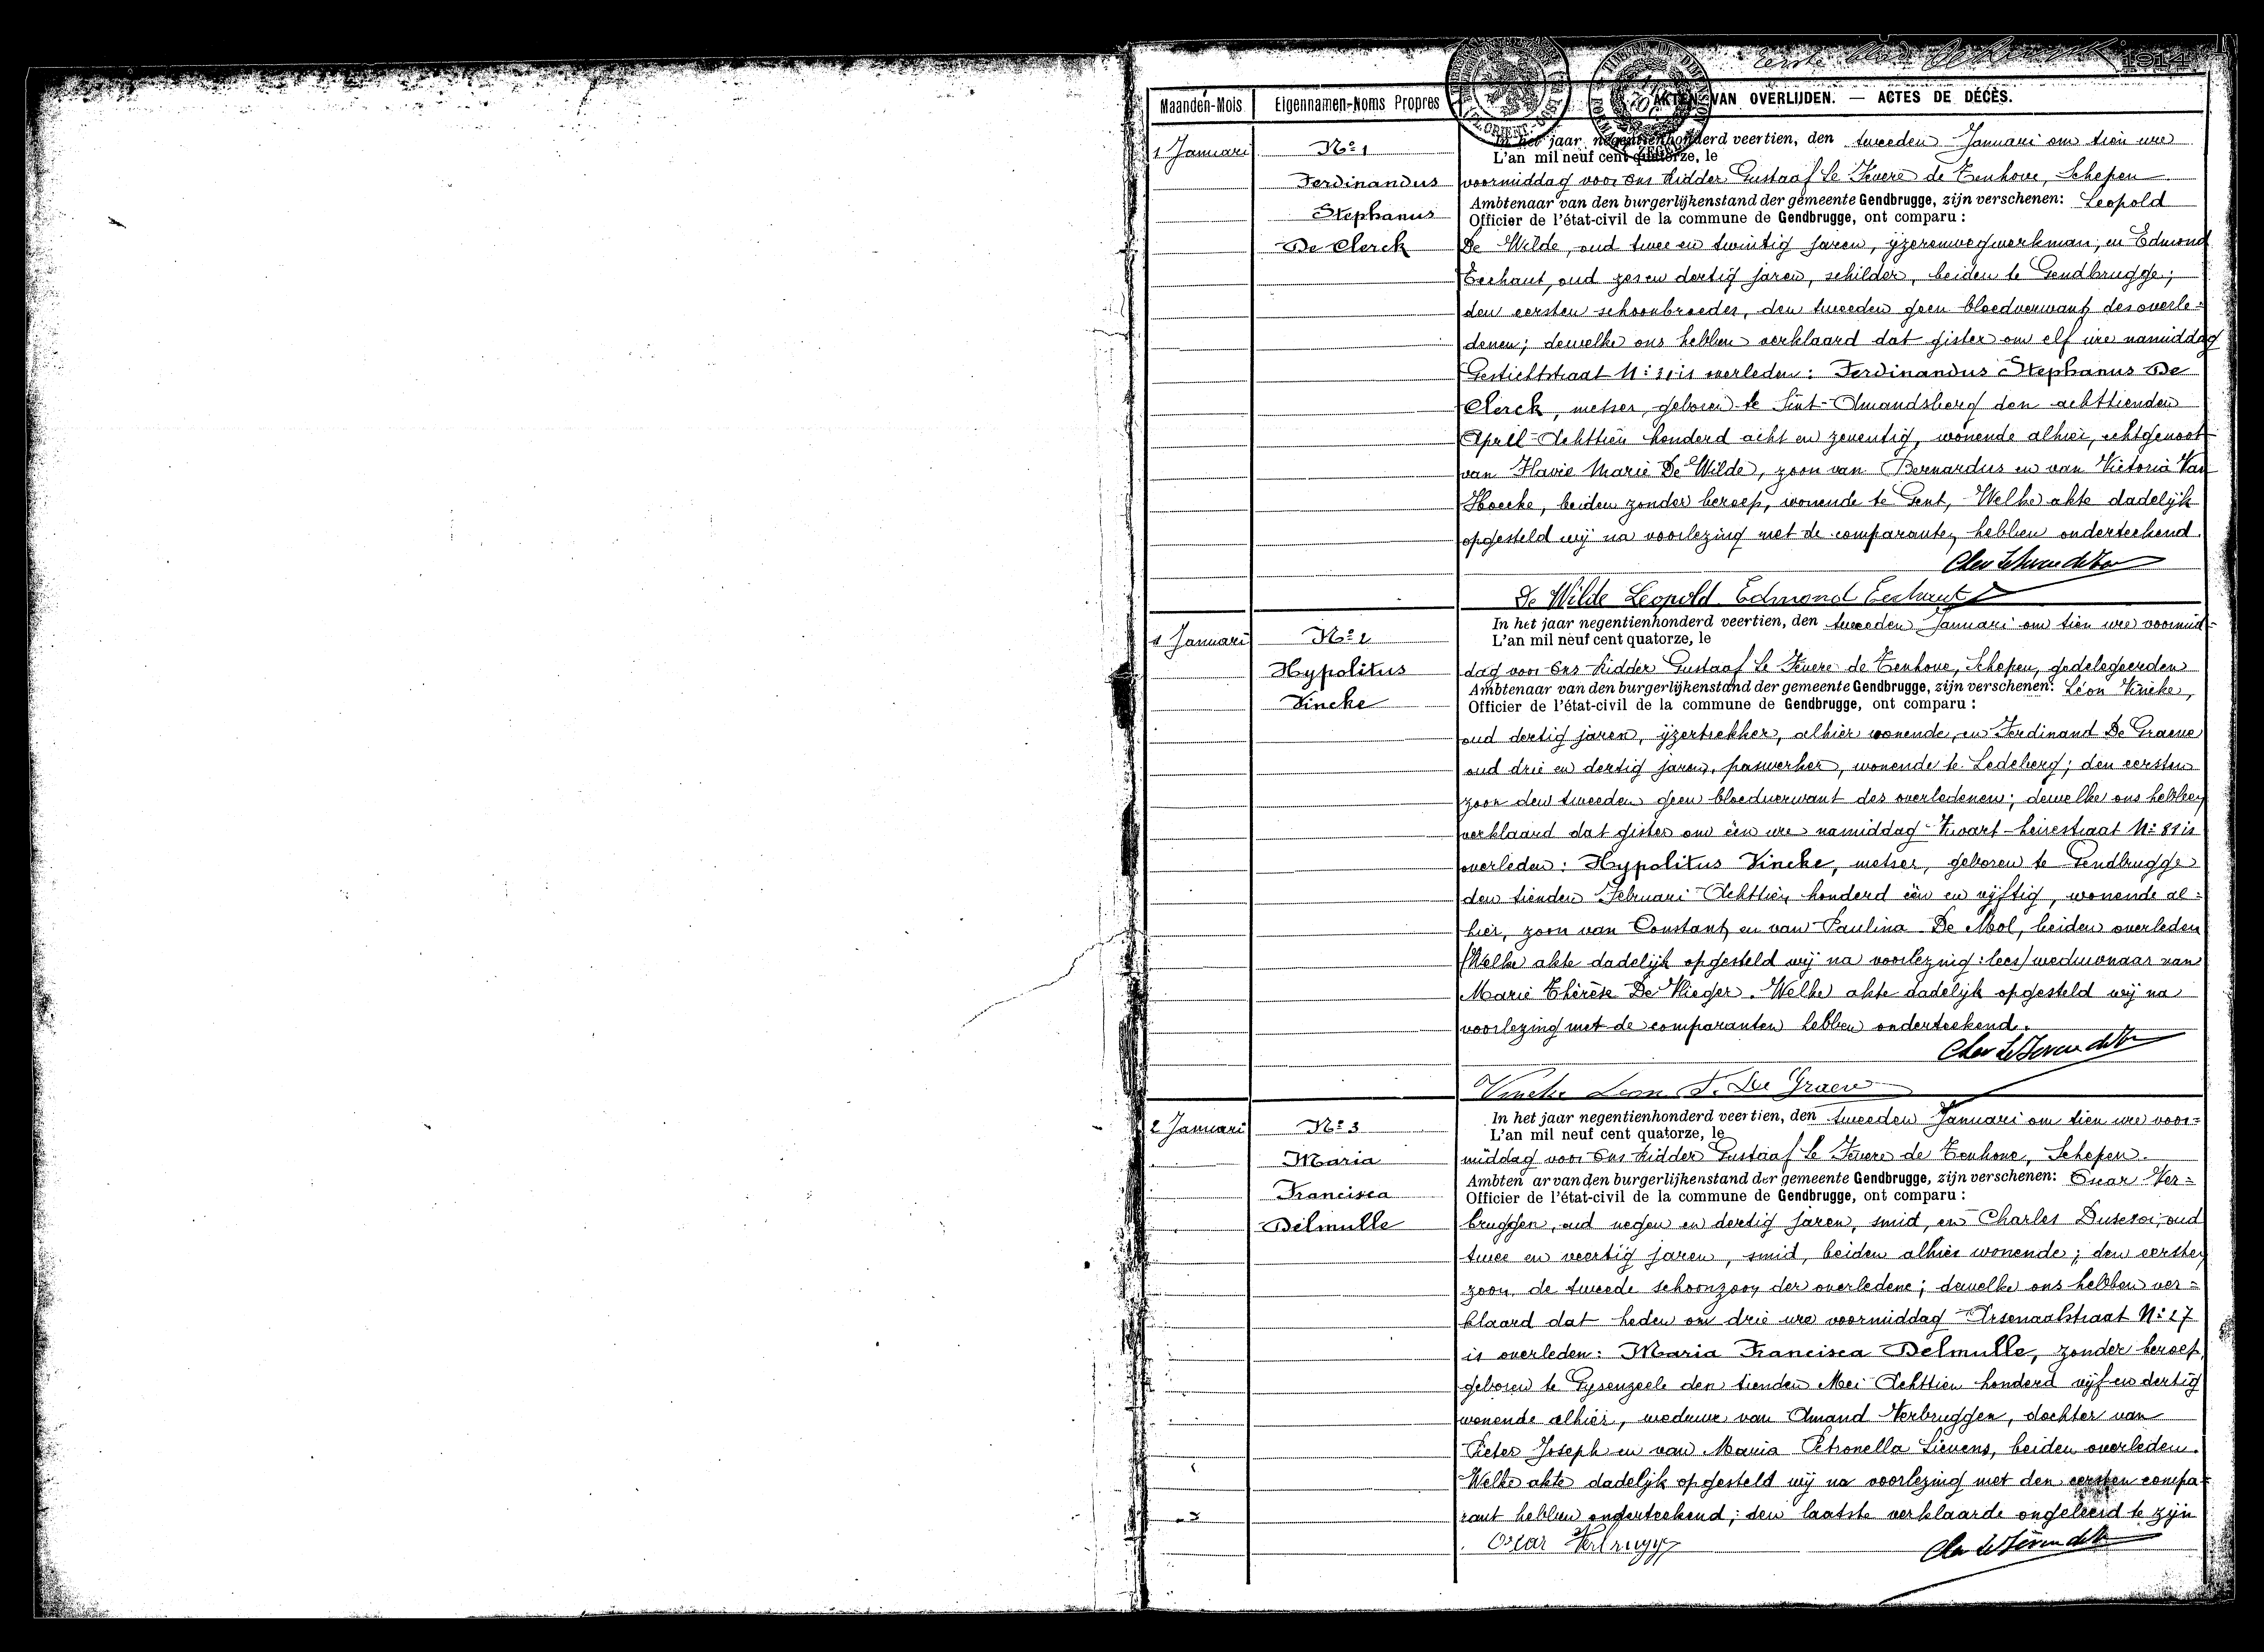 Eerste blad 1914
Maanden-Mois Eigennamen-Noms Propres AKTEN VAN OVERLIJDEN. — ACTES DE DÉCÈS.
1 Januari
Nº 1
Ferdinandus
Stephanus
De Clerck
In het jaar negentienhonderd veertien, den tweeden Januari om tien ure
L'an mil neuf cent quatorze, le
voormiddag voor Ons Ridder Gustaaf le Fevere de Tenhove, Schepen
Ambtenaar van den burgerlijkenstand der gemeente Gendbrugge, zijn verschenen: Leopold
Officier de l'état-civil de la commune de Gendbrugge, ont comparu :
De Wilde, oud twee en twintig jaren, ijzerenwegwerkman, en Edmond
Eechaut, oud zes en dertig jaren, schilder, beiden te Gendbrugge;
den eersten schoonbroeder, den tweeden geen bloedverwant des overle=
denen; dewelke ons hebben verklaard dat gister om elf ure namiddag
Gestichtstraat Nº is overleden: Ferdinandus Stephanus De
Clerck, metser, geboren te Sint-Amandsberg den achttienden
April Achttien honderd acht en zeventig, wonende alhier, echtgenoot
van Flavie Marie De Wilde, zoon van Bernardus en van Victoria Van
Hoecke, beiden zonder beroep, wonende te Gent, Welke akte dadelijk
opgesteld wij na voorlezing met de comparanten hebben onderteekend.
De Wilde Leopold Edmond Eechaut
1 Januari
Nº 2
Hypolitus
Vincke
In het jaar negentienhonderd veertien, den tweeden Januari om tien ure voormid=
L'an mil neuf cent quatorze, le
dag voor Ons Ridder Gustaaf le Fevere de Tenhove, Schepen, gedelegeerden
Ambtenaar van den burgerlijkenstand der gemeente Gendbrugge, zijn verschenen: Léon Vincke,
Officier de l'état-civil de la commune de Gendbrugge, ont comparu :
oud dertig jaren, ijzertrekker, alhier wonende, en Ferdinand De Graeve
oud drie en dertig jaren, paswerker, wonende te Ledeberg; den eersten
zoon den tweeden geen bloedverwant des overledenen; dewelke ons hebben
verklaard dat gister om één ure namiddag Nº is
overleden: Hypolitus Vincke, metser, geboren te Gendbrugge
den tienden Februari Achttien honderd één en vijftig, wonende al=
hier, zoon van Constant en van Paulina De Mol, beiden overleden
(Welke akte dadelijk opgesteld wij na voorlezing: lees) weduwnaar van
Marie Thérèse De Vlieger. Welke akte dadelijk opgesteld wij na
voorlezing met de comparanten hebben onderteekend.
Vincke Leon F. De Graeve
2 Januari
Nº 3
Maria
Francisca
Delmulle
In het jaar negentienhonderd veertien, den tweeden Januari om tien ure voor=
L'an mil neuf cent quatorze, le
middag voor Ons Ridder Gustaaf le Fevere de Tenhove, Schepen.
Ambten ar van den burgerlijkenstand der gemeente Gendbrugge, zijn verschenen: Oscar Ver=
Officier de l'état-civil de la commune de Gendbrugge, ont comparu :
bruggen, oud negen en dertig jaren, smid, en Charles oud
twee en veertig jaren, smid, beiden alhier wonende; den eersten
zoon, de tweede schoonzoon der overledene; dewelke ons hebben ver=
klaard dat heden om drie ure voormiddag Arsenaalstraat Nº 17
is overleden: Maria Francisca Delmulle, zonder beroep,
geboren te Gysenzeele den tienden Mei Achttien honderd vijf en dertig
wonende alhier, weduwe van Amand Verbruggen, dochter van
Pieter Joseph en van Maria Petronella Lievens, beiden overleden.
Welke akte dadelijk opgesteld wij na voorlezing met den eersten compa=
rant hebben onderteekend; den laatste verklaarde ongeleerd te zijn
Oscar Verbrugg